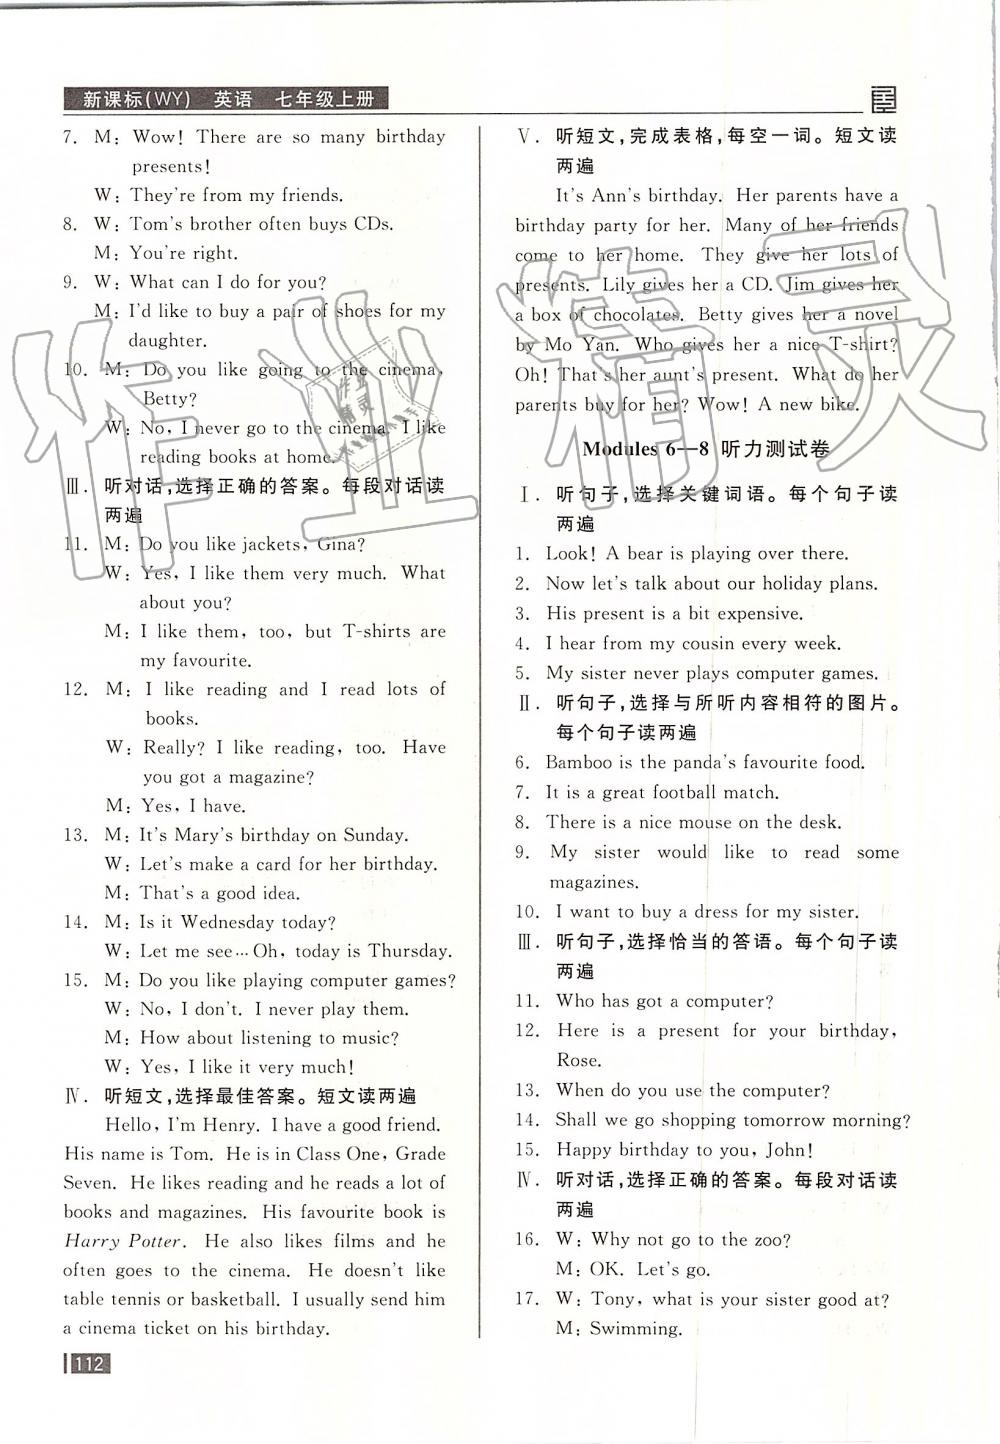 新课标(WY) 英语 七年级上册
7. M: Wow! There are so many birthday
presents!
W: They're from my friends.
8. W: Tom's brother often buys CDs.
M: You're right.
9. W: What can I do for you?
M: I'd like to buy a pair of shoes for my
daughter.
10. M: Do you like going to the cinema,
Betty?
W: No, I never go to the cinema. I like
reading books at home.
Ⅲ. 听对话,选择正确的答案。每段对话读
两遍
11. M: Do you like jackets, Gina?
W: Yes, I like them very much. What
about you?
M: I like them, too, but T-shirts are
my favourite.
12. M: I like reading and I read lots of
books.
W: Really? I like reading, too. Have
you got a magazine?
M: Yes, I have.
13. M: It's Mary's birthday on Sunday.
W: Let's make a card for her birthday.
M: That's a good idea.
14. M: Is it Wednesday today?
W: Let me see…Oh, today is Thursday.
15. M: Do you like playing computer games?
W: No, I don't. I never play them.
M: How about listening to music?
W: Yes, I like it very much!
Ⅳ. 听短文,选择最佳答案。短文读两遍
Hello, I'm Henry. I have a good friend.
His name is Tom. He is in Class One, Grade
Seven. He likes reading and he reads a lot of
books and magazines. His favourite book is
Harry Potter. He also likes films and he
often goes to the cinema. He doesn't like
table tennis or basketball. I usually send him
a cinema ticket on his birthday.
112
Ⅴ. 听短文,完成表格,每空一词。短文读
两遍
It's Ann's birthday. Her parents have a
birthday party for her. Many of her friends
come to her home. They give her lots of
presents. Lily gives her a CD. Jim gives her
a box of chocolates. Betty gives her a novel
by Mo Yan. Who gives her a nice T-shirt?
Oh! That's her aunt's present. What do her
parents buy for her? Wow! A new bike.
Modules 6—8 听力测试卷
Ⅰ. 听句子,选择关键词语。每个句子读
两遍
1. Look! A bear is playing over there.
2. Now let's talk about our holiday plans.
3. His present is a bit expensive.
4. I hear from my cousin every week.
5. My sister never plays computer games.
Ⅱ. 听句子,选择与所听内容相符的图片。
每个句子读两遍
6. Bamboo is the panda's favourite food.
7. It is a great football match.
8. There is a nice mouse on the desk.
9. My sister would like to read some
magazines.
10. I want to buy a dress for my sister.
Ⅲ. 听句子,选择恰当的答语。每个句子读
两遍
11. Who has got a computer?
12. Here is a present for your birthday,
Rose.
13. When do you use the computer?
14. Shall we go shopping tomorrow morning?
15. Happy birthday to you, John!
Ⅳ. 听对话,选择正确的答案。每段对话读
两遍
16. W: Why not go to the zoo?
M: OK. Let's go.
17. W: Tony, what is your sister good at?
M: Swimming.
作业精灵
作业
精灵